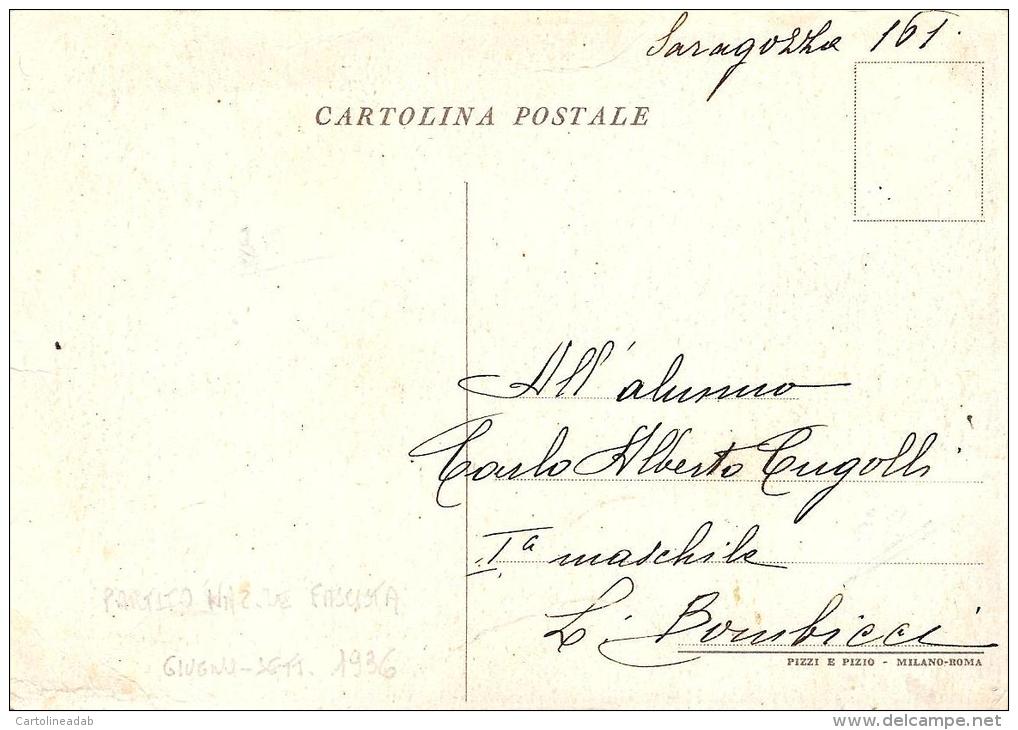 Saragozza 161.
CARTOLINA POSTALE
All'alunno
Carlo Alberto Cugolli
Iª maschile
L. Bombicci
PARTITO NAZ.LE FASCISTA
GIUGNO-SETT. 1936
PIZZI E PIZIO - MILANO-ROMA
Cartolineadab
www.delcampe.net